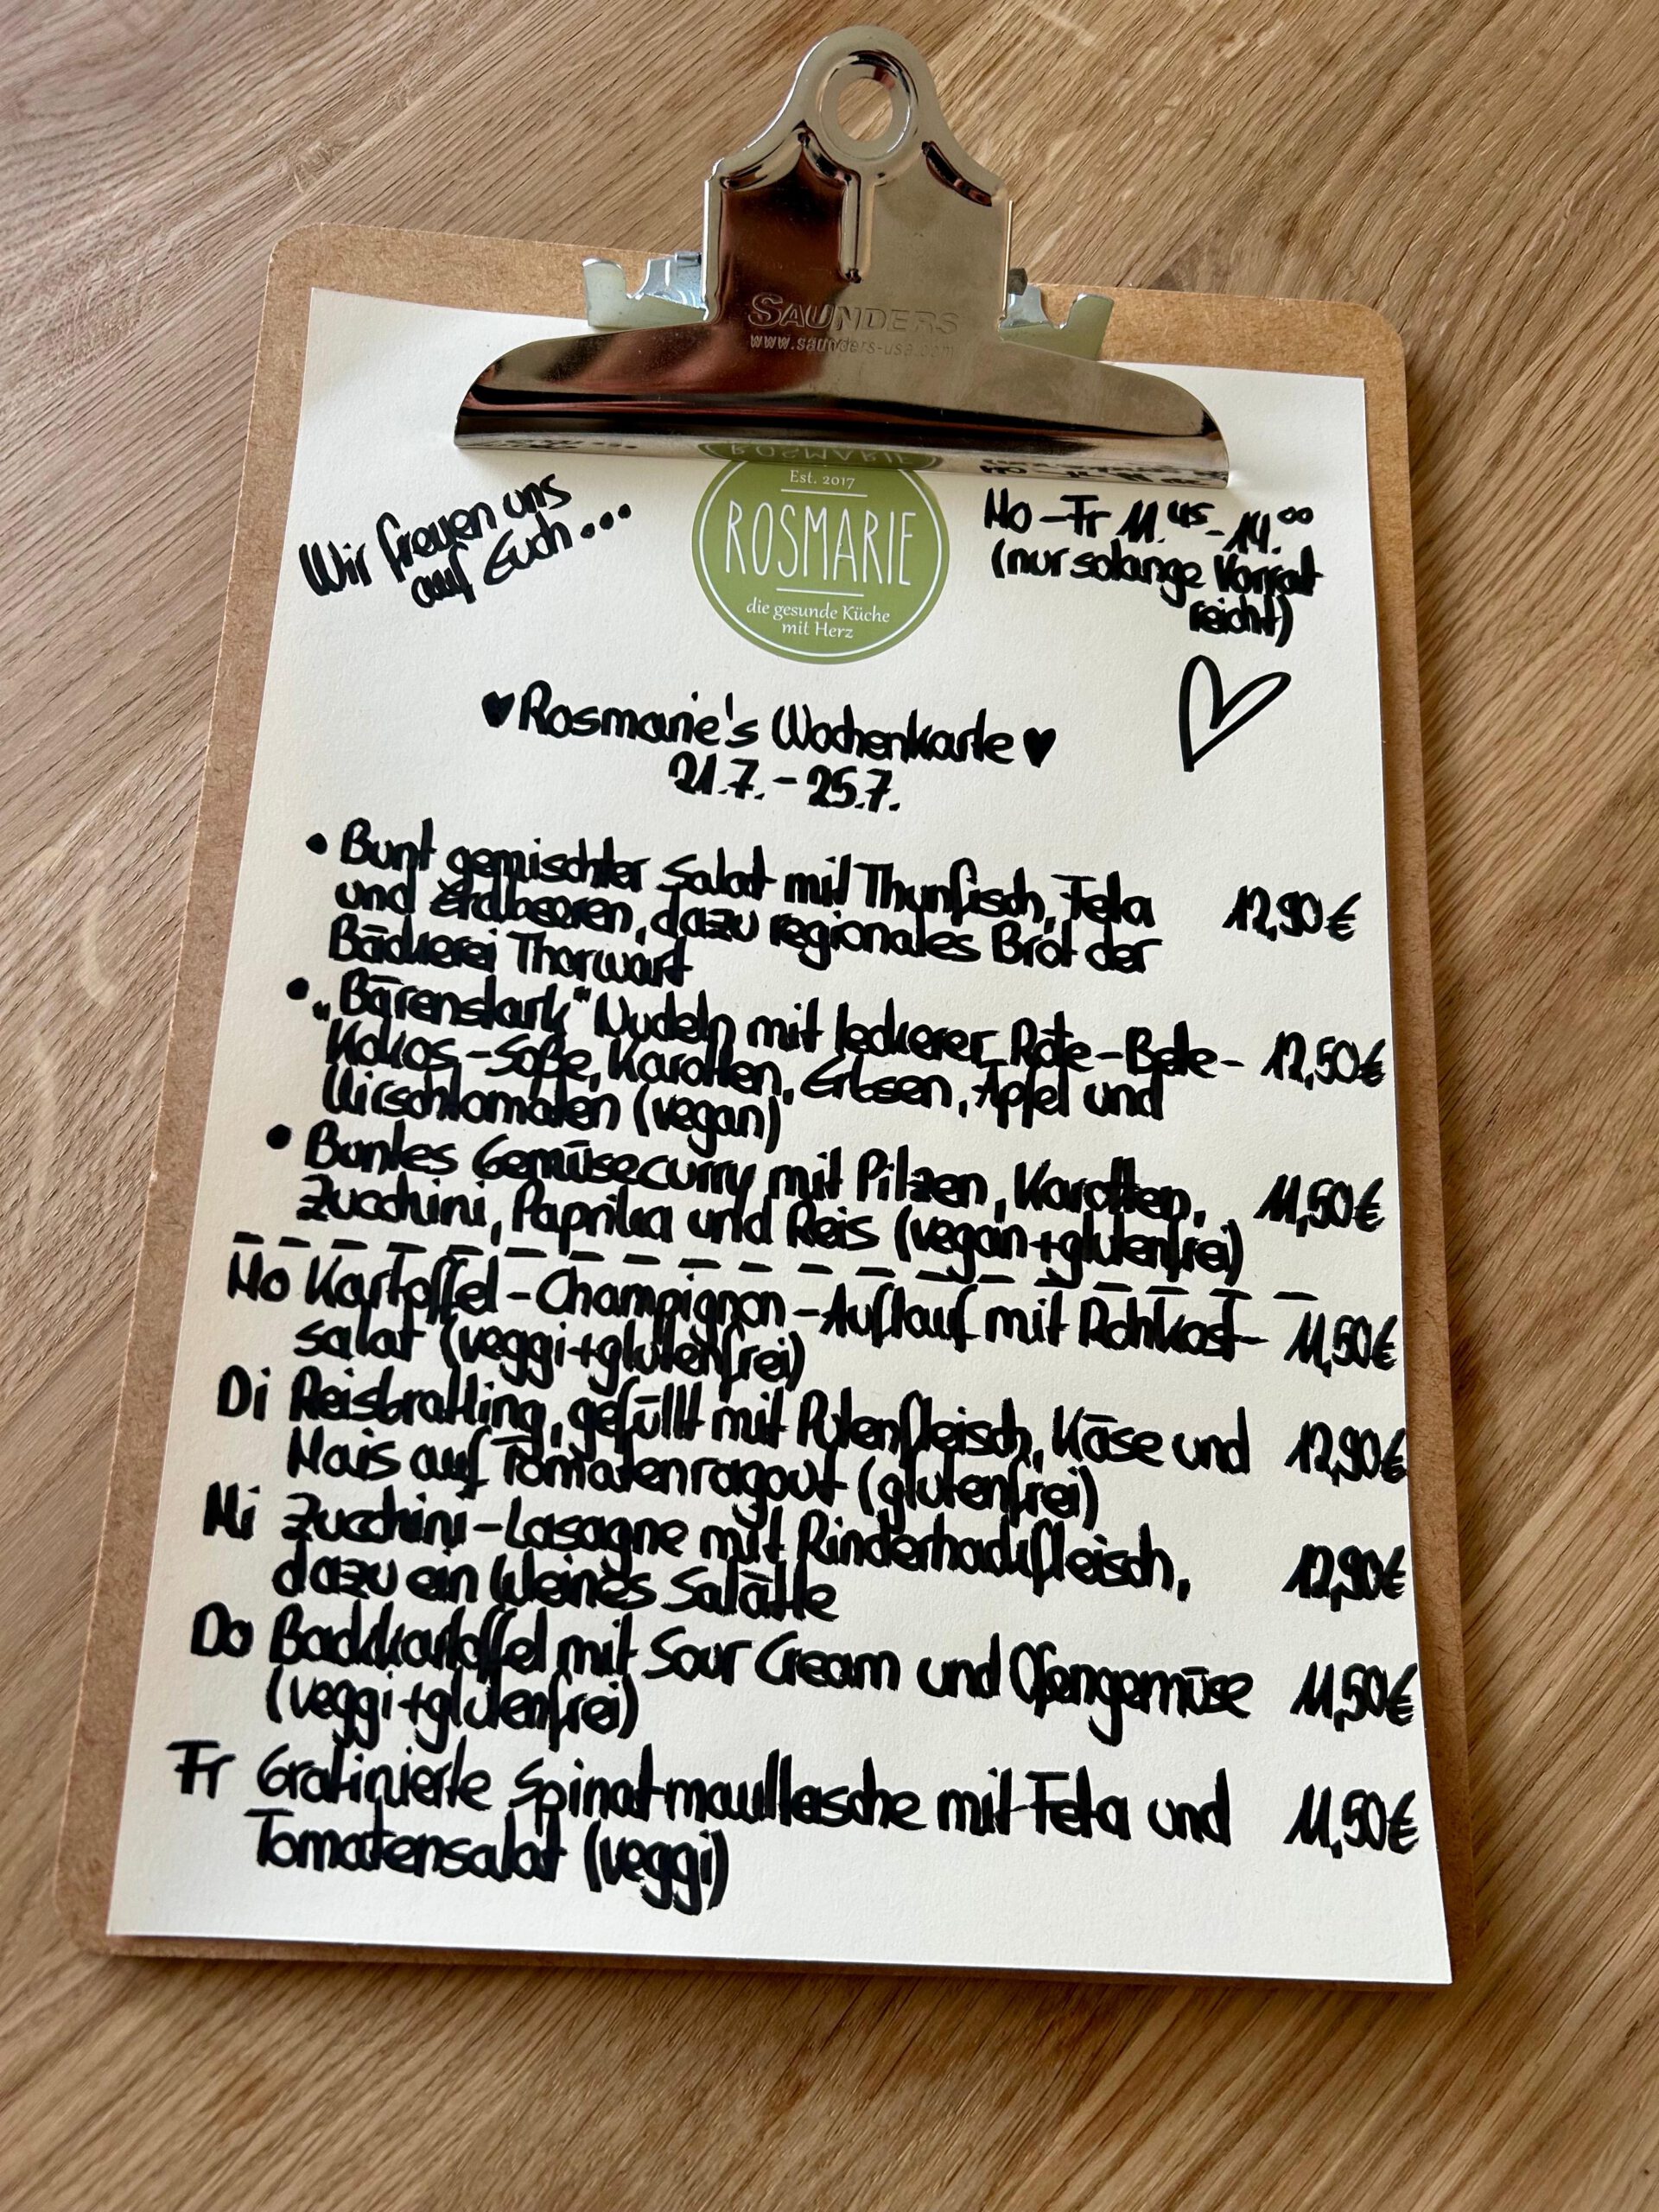 SAUNDERS
www.saunders-usa.com
Wir freuen uns
auf Euch...
Est. 2017
ROSMARIE
die gesunde Küche
mit Herz
Mo-Fr 11.45-14.00
(nur solange Vorrat
reicht)
♥Rosmarie's Wochenkarte♥
21.7.-25.7.
• Bunt gemischter Salat mit Thunfisch, Feta 12,90€
und Erdbeeren, dazu regionales Brot der
Bäckerei Thorwart
• „Bärenstark“ Nudeln mit leckerer Rote-Bete- 12,50€
Kokos-Soße, Karotten, Erbsen, Apfel und
Kirschtomaten (vegan)
• Buntes Gemüsecurry mit Pilzen, Karotten, 11,50€
Zucchini, Paprika und Reis (vegan+glutenfrei)
Mo Kartoffel-Champignon-Auflauf mit Rohkost- 11,50€
salat (veggi+glutenfrei)
Di Reisbratling, gefüllt mit Putenfleisch, Käse und 12,90€
Mais auf Tomatenragout (glutenfrei)
Mi Zucchini-Lasagne mit Rinderhackfleisch, 12,90€
dazu ein kleines Salätle
Do Backkartoffel mit Sour Cream und Ofengemüse 11,50€
(veggi+glutenfrei)
Fr Gratinierte Spinatmaultasche mit Feta und 11,50€
Tomatensalat (veggi)